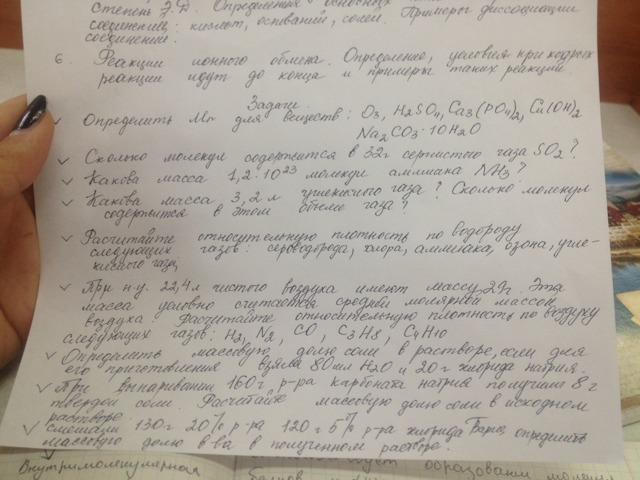 степень Э.Д. Определения основных
соединений: кислот, оснований, солей. Примеры диссоциации
соединений.
6. Реакции ионного обмена. Определение, условия при которых
реакции идут до конца и примеры таких реакций
Задачи.
Определить Mr для веществ: O3, H2SO4, Ca3(PO4)2, Cu(OH)2
Na2CO3·10H2O
Сколько молекул содержится в 32г сернистого газа SO2?
Какова масса 1,2·10²³ молекул аммиака NH3?
Какова масса 3,2 л углекислого газа? Сколько молекул
содержится в этом объеме газа?
Расчитайте относительную плотность по водороду
следующих газов: сероводорода, хлора, аммиака, озона, угле-
кислого газа,
При н.у. 22,4л чистого воздуха имеют массу 29г. Эта
масса условно считается средней молярной массой
воздуха. Расчитайте относительную плотность по воздуху
следующих газов: H2, N2, CO, C3H8, C4H10
Определить массовую долю соли в растворе, если для
его приготовления взяли 80мл H2O и 20г хлорида натрия.
При выпаривании 160г р-ра карбоната натрия получили 8г
твердой соли. Расчитайте массовую долю соли в исходном
растворе
смешали 130г 20% р-ра 120г 5% р-ра хлорида Бария, определить
массовую долю в-ва в полученном растворе.
Внутримолекулярная
образовании